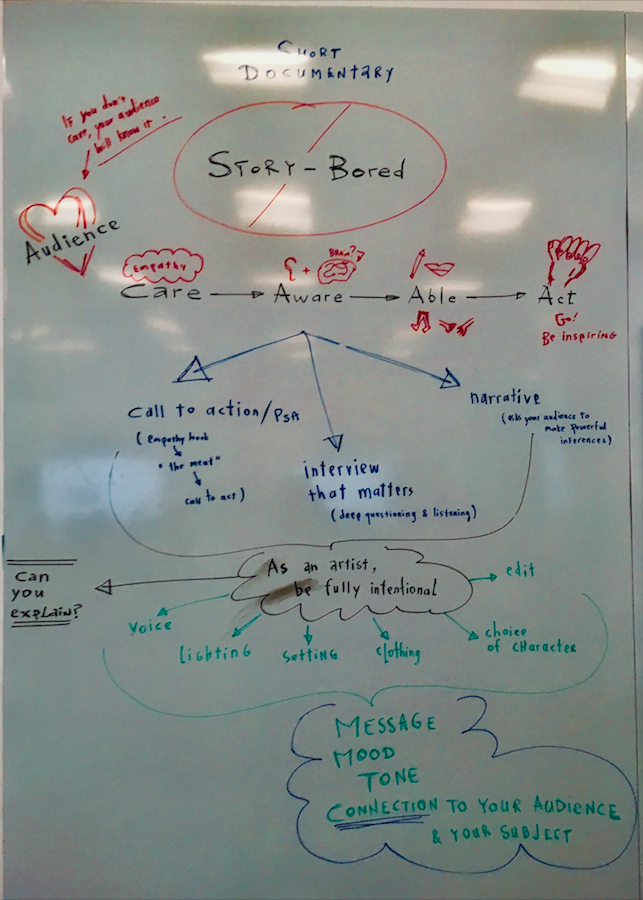 SHORT
DOCUMENTARY
If you don't
care, your audience
will know it.
STORY - Bored
Audience
Empathy
BRAIN?
+
Care
Aware
Able
Act
Go!
Be inspiring
call to action/PSA
(empathy hook
"the meat"
call to act)
interview
that matters
(deep questioning & listening)
narrative
(asks your audience to
make powerful
inferences)
As an artist,
be fully intentional
Can
you
explain?
voice
lighting
setting
clothing
choice
of character
edit
MESSAGE
MOOD
TONE
CONNECTION TO YOUR AUDIENCE
& YOUR SUBJECT